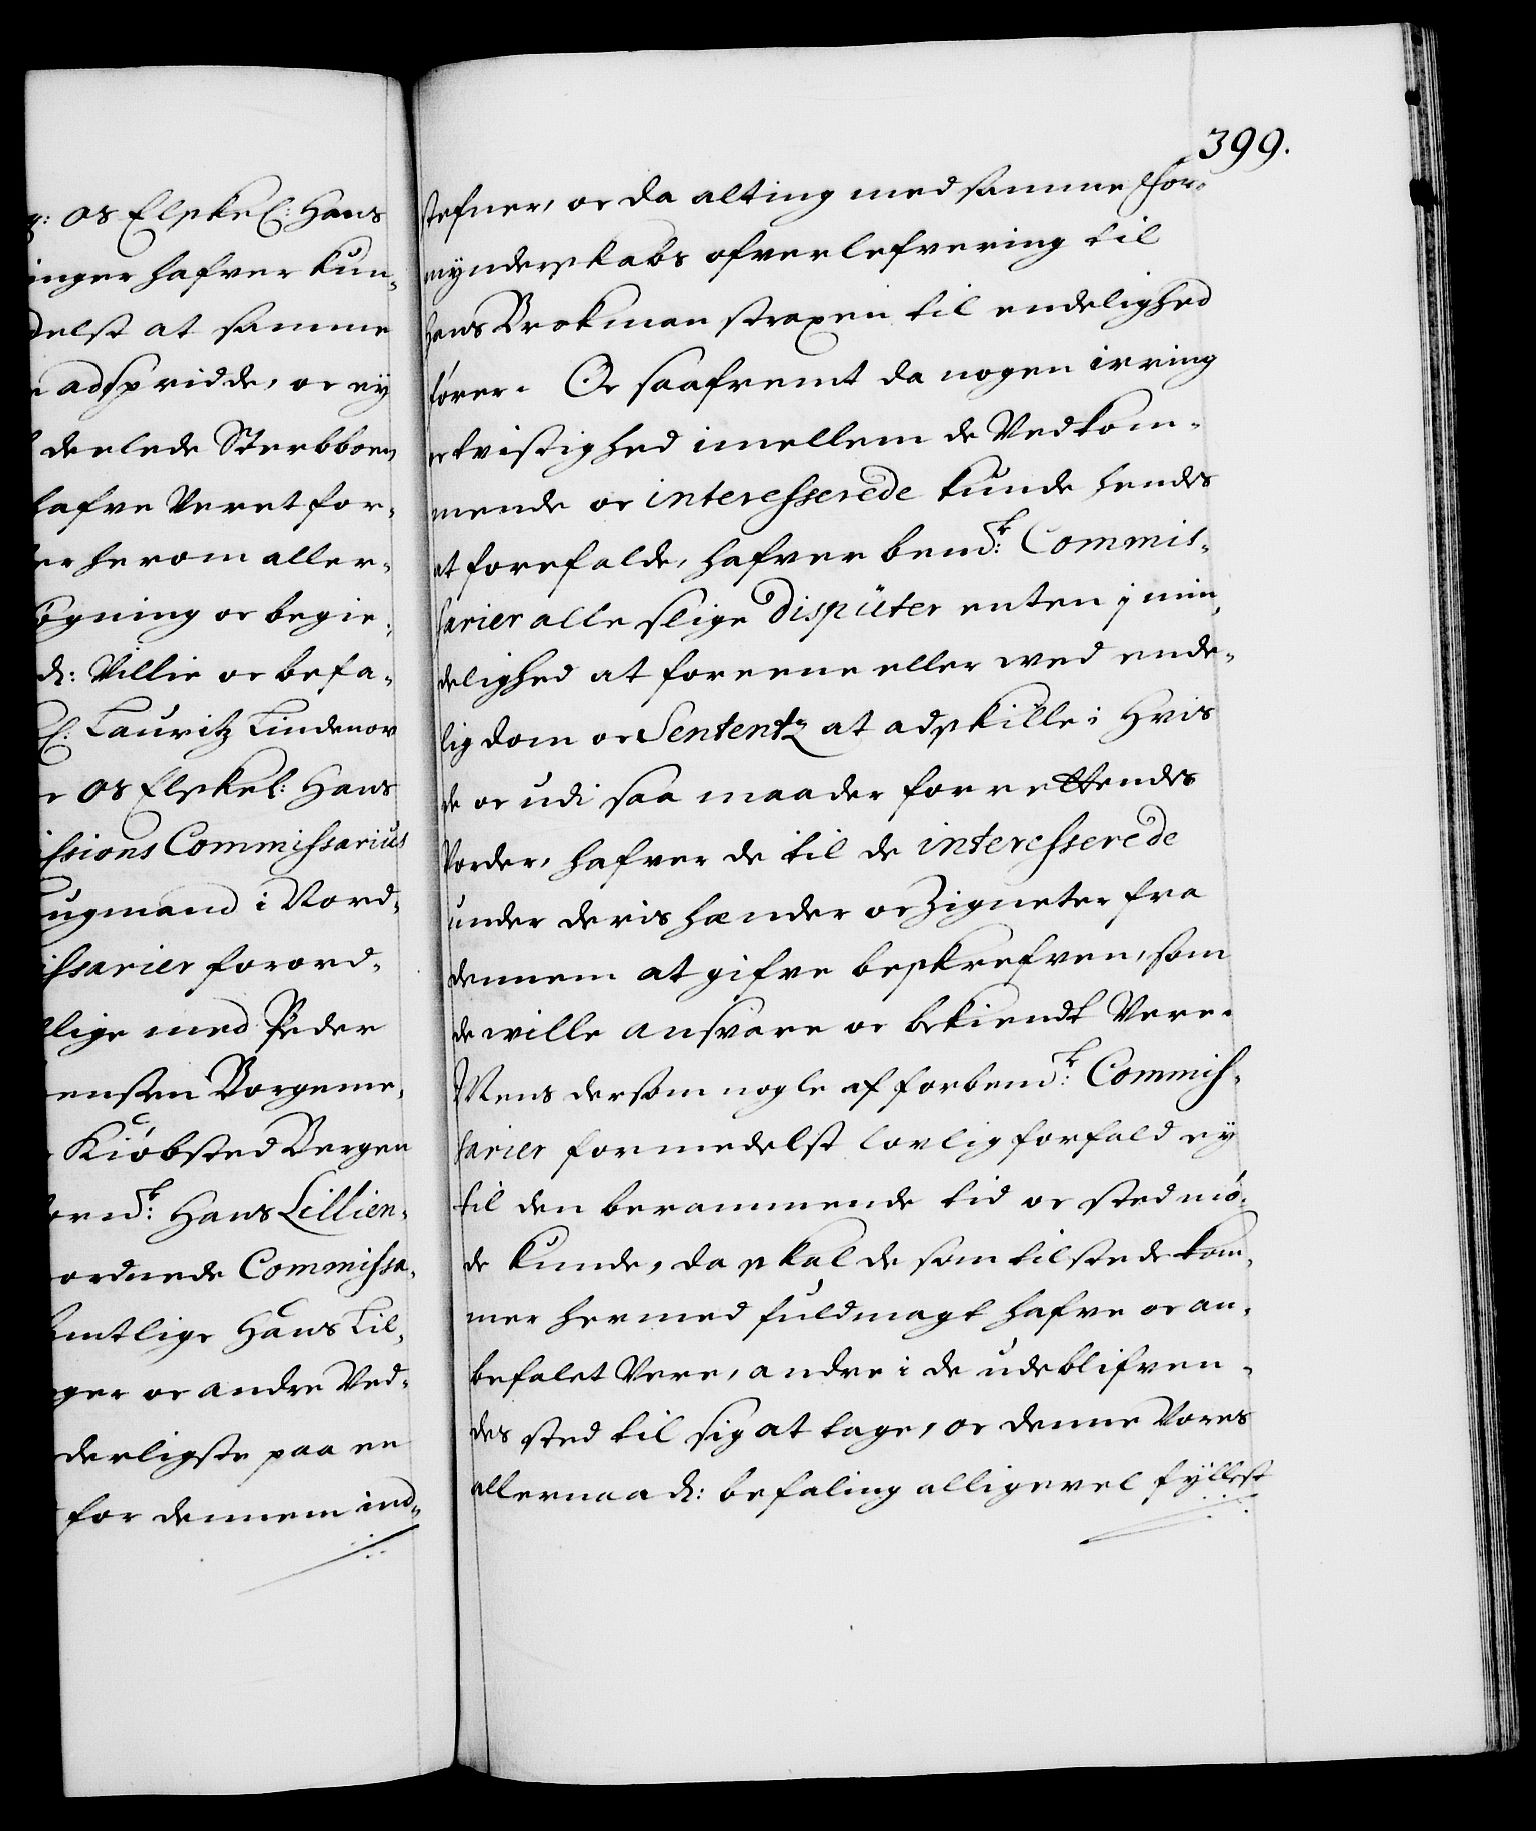 399.
os Elskel: Hans
inger hafver kun-
delst at samme
adspridde, oc ey
deelede Sterbboen,
hafve Veret for-
er herom aller-
øgning oc begie-
d: Villie oc befa-
l: Lauritz Lindenov
os Elskel: Hans
issions Commissarius
augmand i Nord-
issarier forord-
lige med Peder
ensen Borgeme-
Kiöbsted Bergen
orn.te: Hans Lillien-
ordnede Commissa-
amtlige Hans Lil-
ger oc andre Ved-
derligste paa en
for dennem ind-
stefner, oc da alting med samme For-
mynderskabs ofverlefvering til
Hans Brokman straxen til endelighed
fører. Oc saafremt da nogen irring
oc tvistighed imellem de Vedkom-
mende oc interesserede kunde hendes
at forefalde, hafver bem.te: Commis-
sarier alle slige dispüter enten j min-
delighed at foreene eller med ende-
lig dom oc Sententz at adskille; Hvis
de oc udi saa maader forrettendes
Vorder, hafver de til de interesserede
under deris hænder oc Zigneter fra
dennem at gifve beskrefven, som
de ville ansvare oc bekiendt Vere.
Mens dersom nogle af forbem.te: Commis-
sarier formedelst lovlig forfald ey
til den berammende tid oc sted mö-
de kunde, da skal de som tilstede kom-
mer hermed fuldmagt hafve oc an-
befalet Vere, andre i de udeblifven-
des sted til sig at tage, oc denne Vores
allernaad: befaling alligevel fyllest